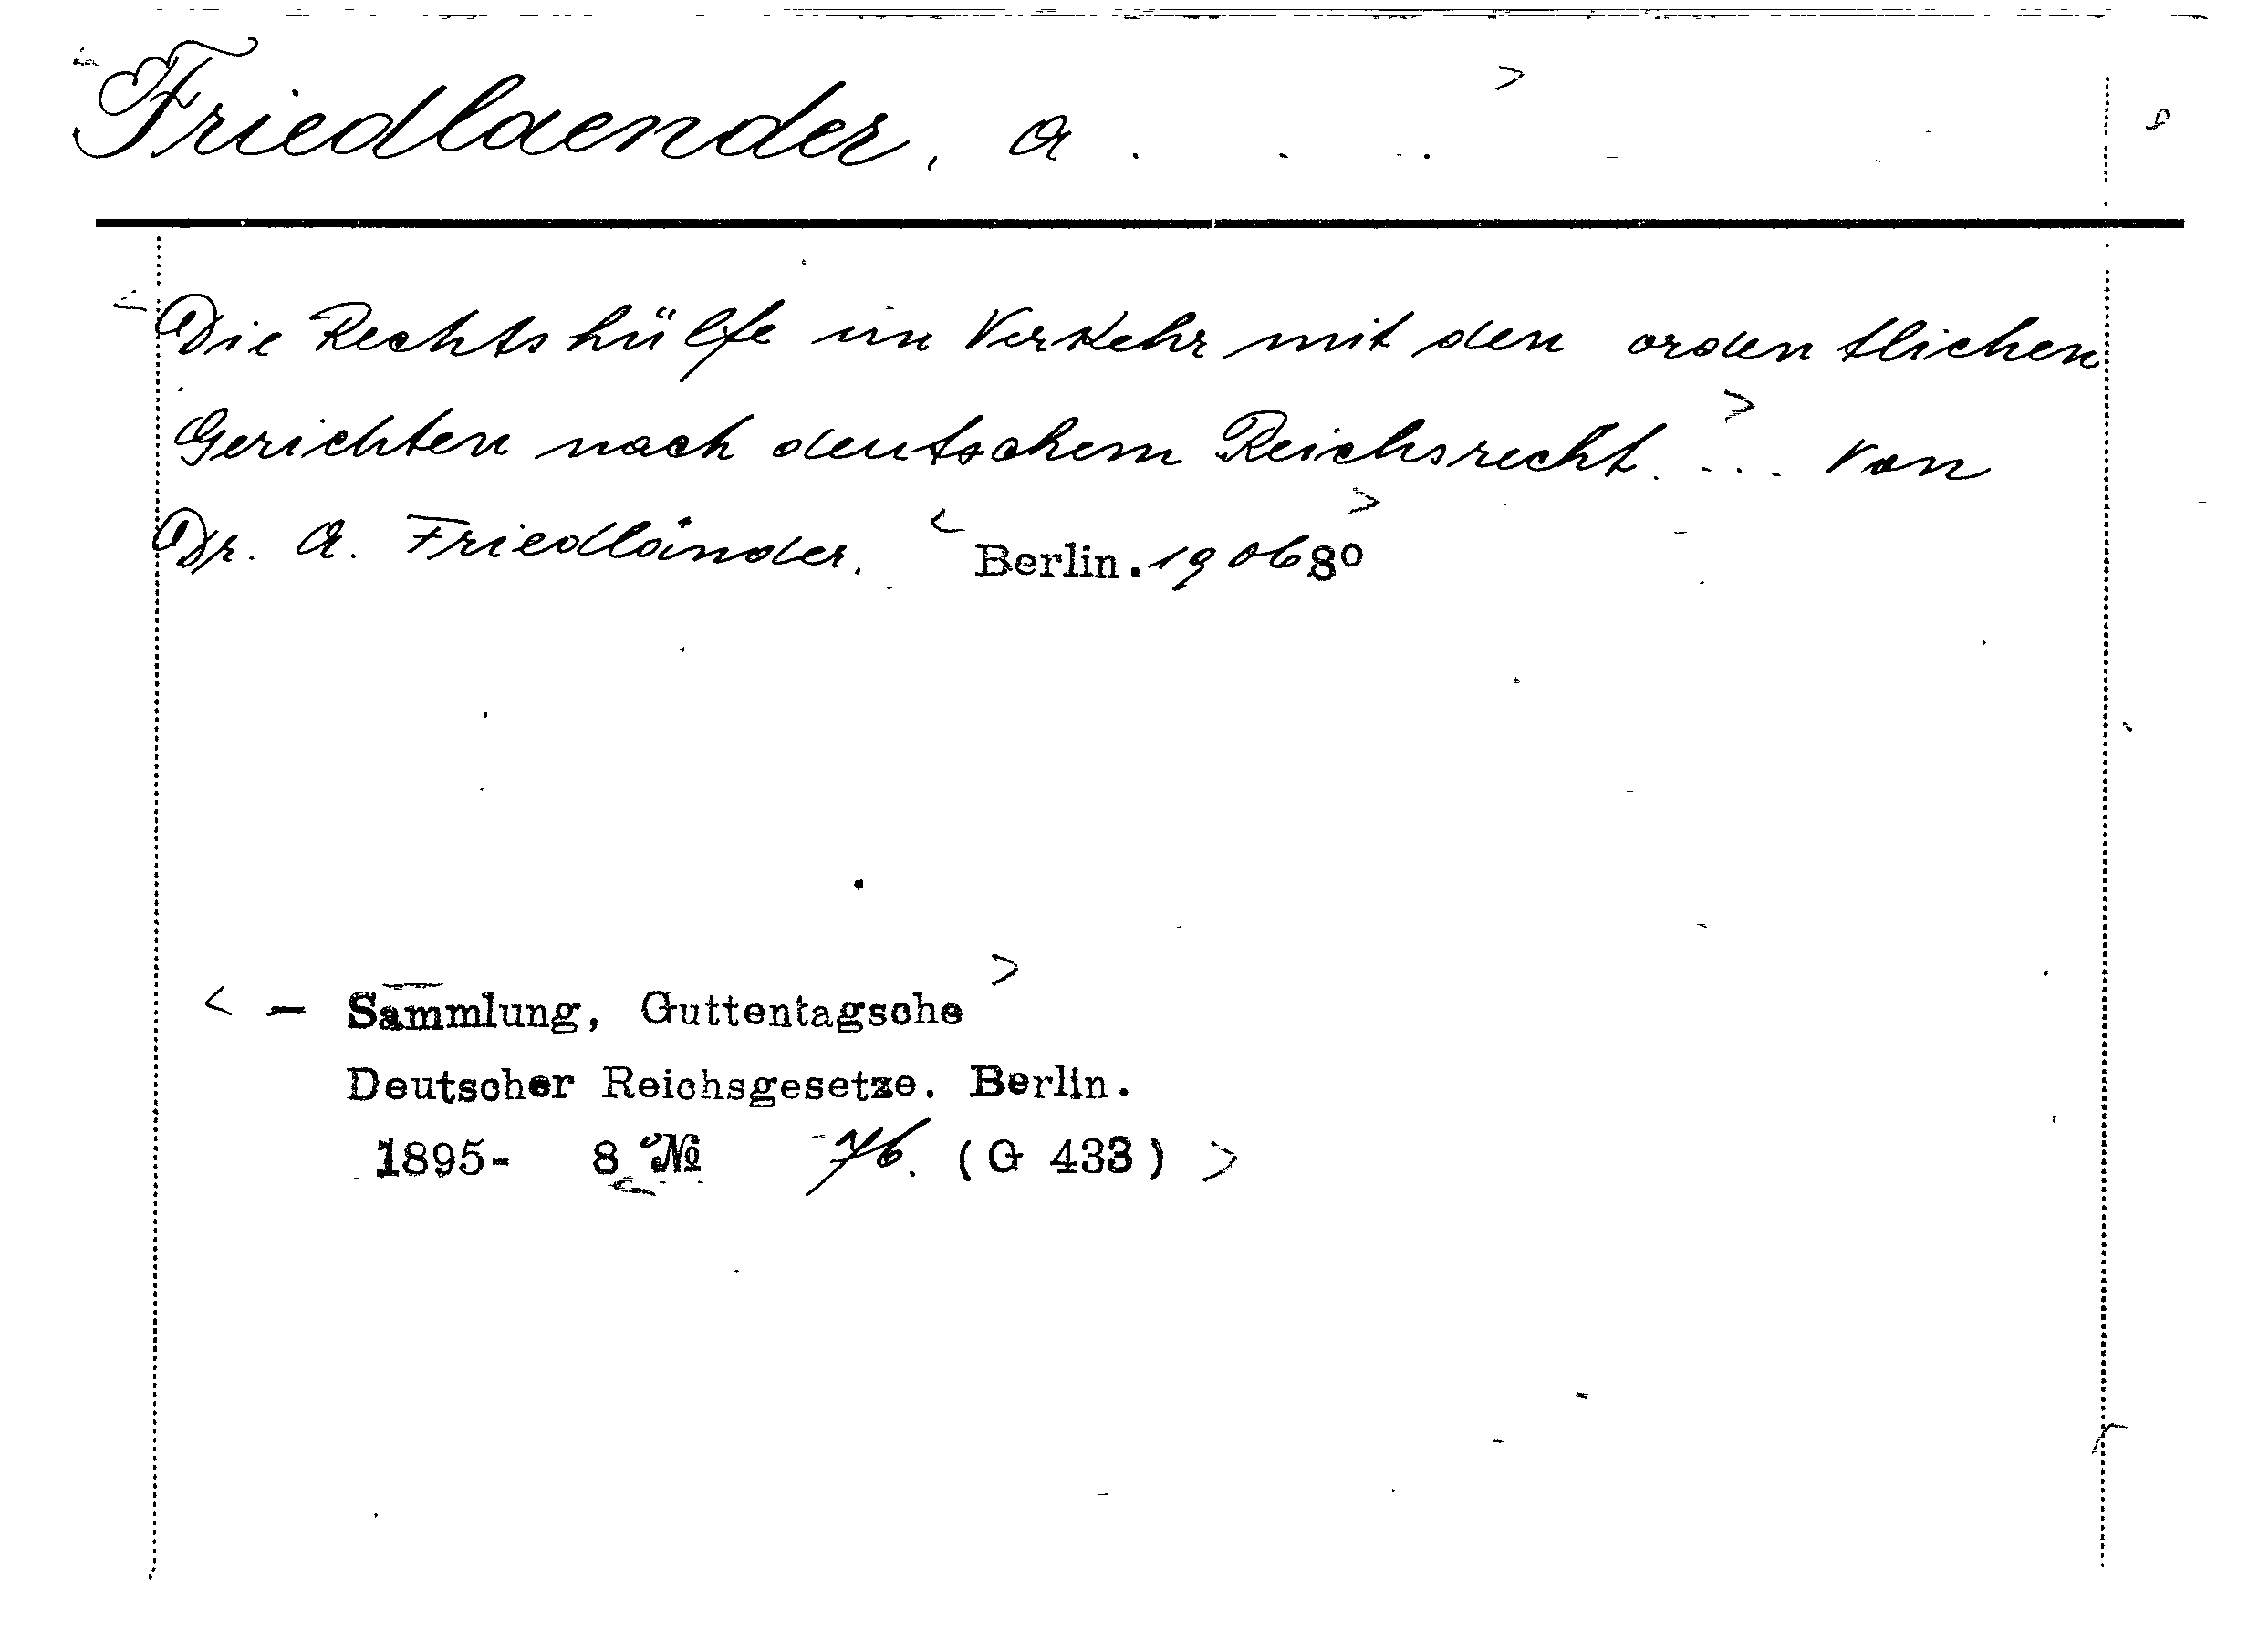 Friedlaender, A . . . .
Die Rechtshülfe im Verkehr mit den ordentlichen
Gerichten nach deutschem Reichsrecht. ... Von
Dr. A. Friedländer. Berlin. 1906 8°
— Sammlung, Guttentagsche
Deutscher Reichsgesetze. Berlin.
1895- 8° № 76. (G 433)